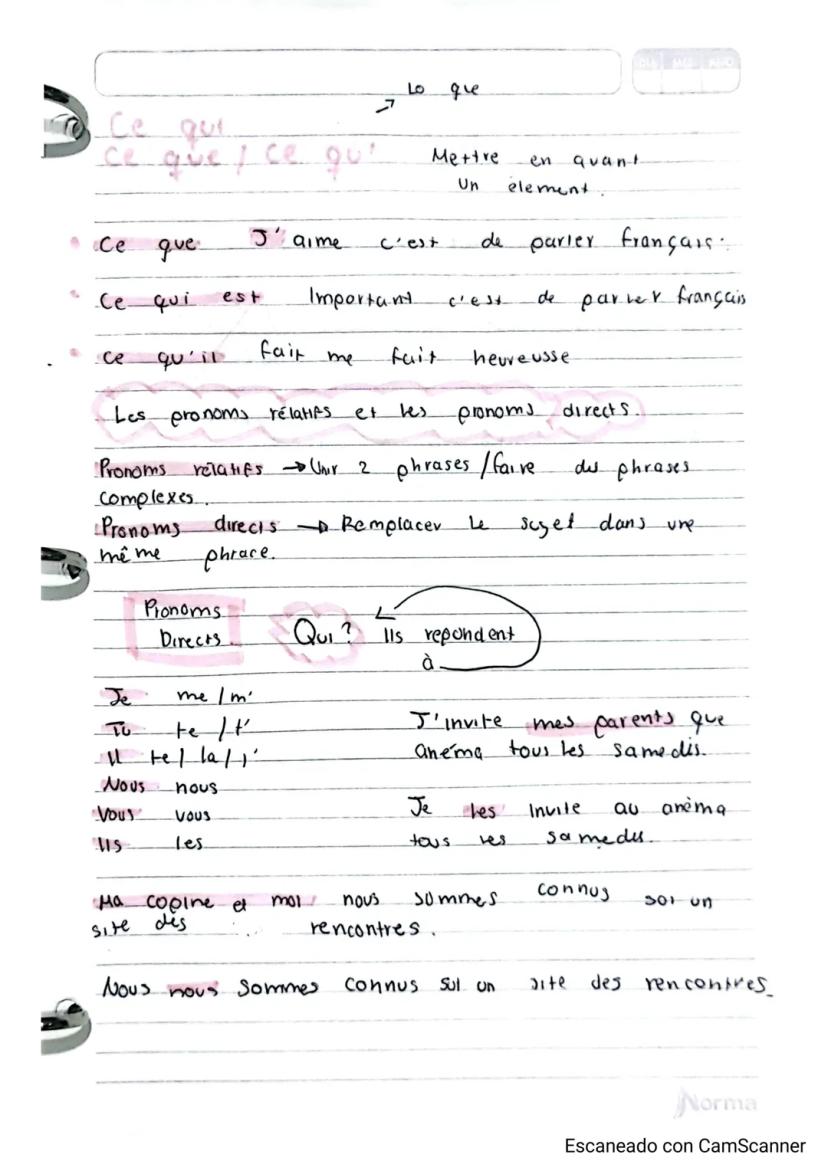 DIA MES AÑO
Lo que
Ce qui
Ce que / Ce qu'
Mettre en avant
un element.
Ce que J'aime c'est de parler français.
Ce qui est Important c'est de parler français
Ce qu'il fait me fait heureusse
Les pronoms rélatifs et les pronoms directs.
Pronoms rélatifs → Unir 2 phrases / faire des phrases
complexes.
Pronoms directs → Remplacer le sujet dans une
même phrace.
Pronoms
Directs
Qui? Ils repondent
à
Je me / m'
Tu te / t'
Il te / la / l'
Nous nous
Vous vous
Ils les
J'invite mes parents que
cinéma tous les samedis.
Je les invite au cinèma
tous les samedis.
Ma copine et moi nous sommes connus sur un
site des rencontres.
Nous nous sommes connus sur un site des rencontres
Norma
Escaneado con CamScanner